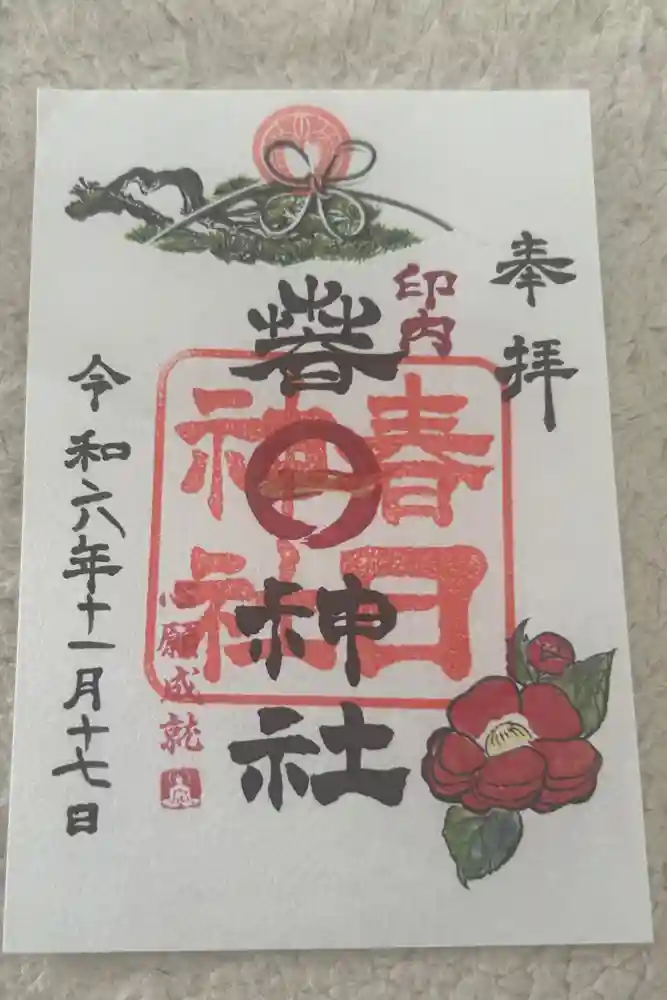 奉拝
印内
萅日神社
春日神社
心願成就
令和六年十一月十七日